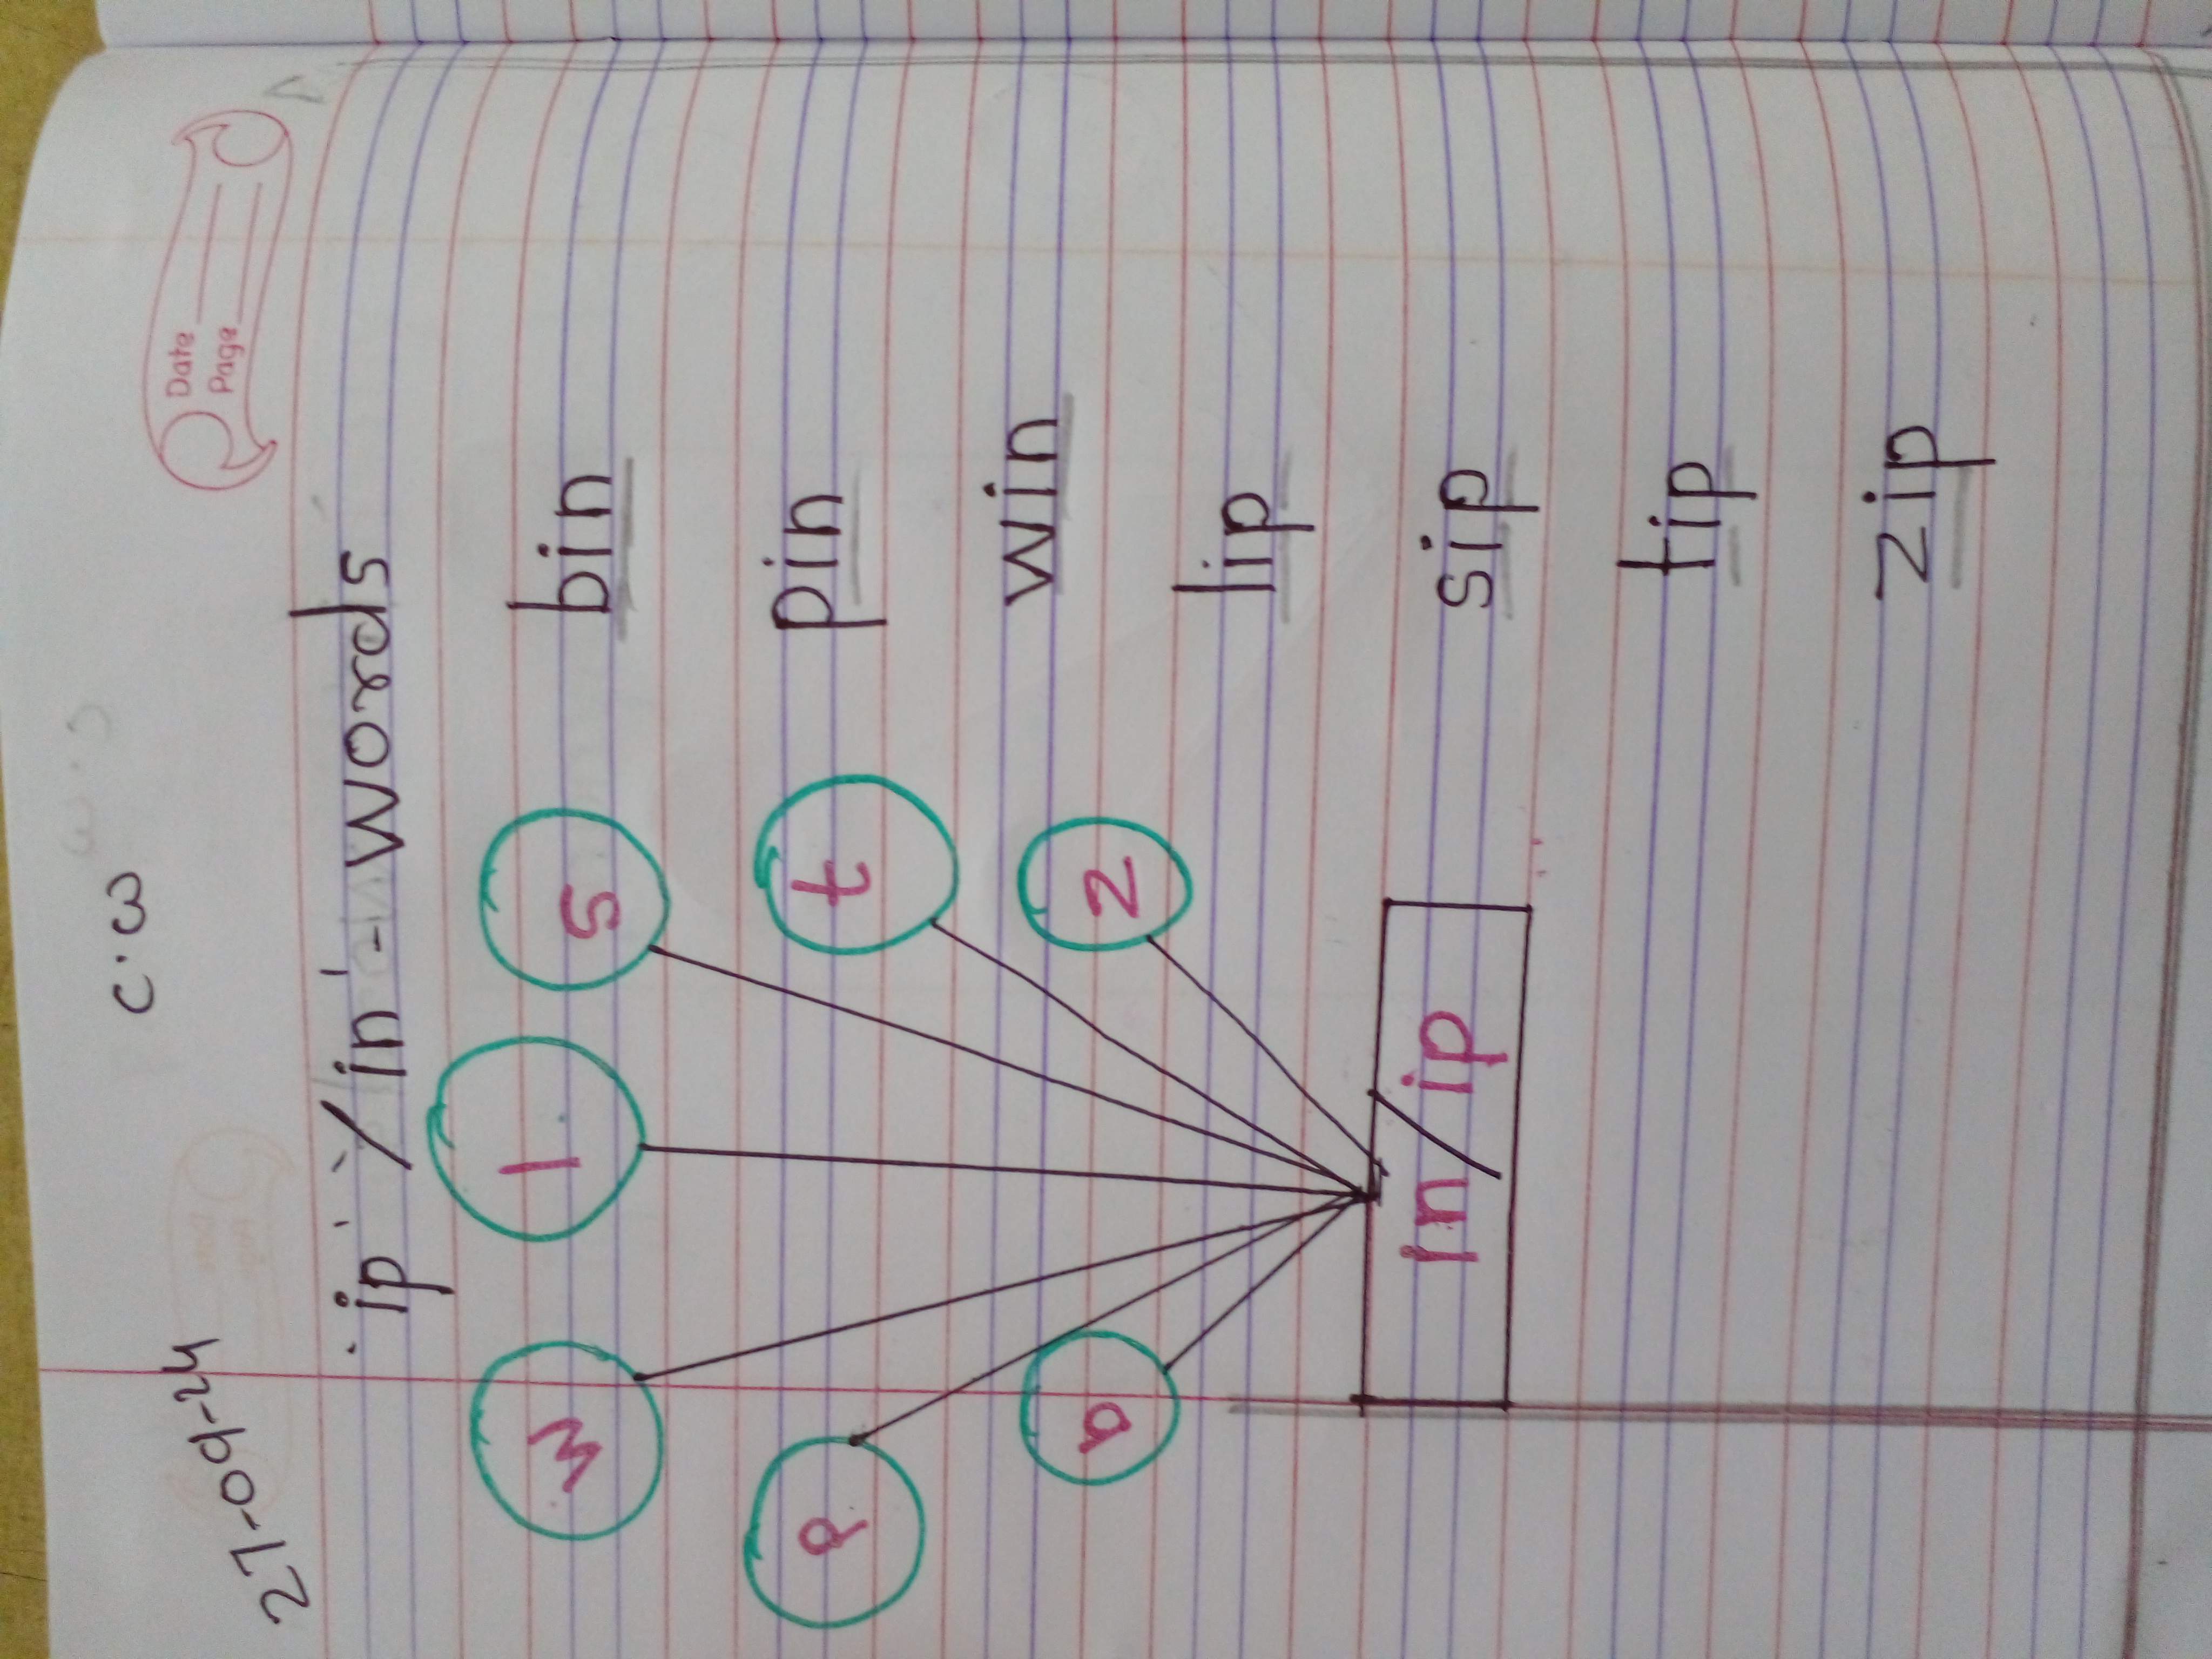 c.w
Date
Page
27-09-24
'ip'/'in'-words
w l s
p t z
b
in/ip
bin
pin
win
lip
sip
tip
zip